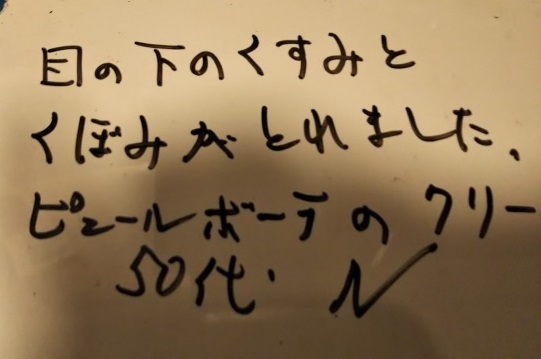 目の下のくすみと
くぼみがとれました.
ピュールボーテのクリー
50代. N